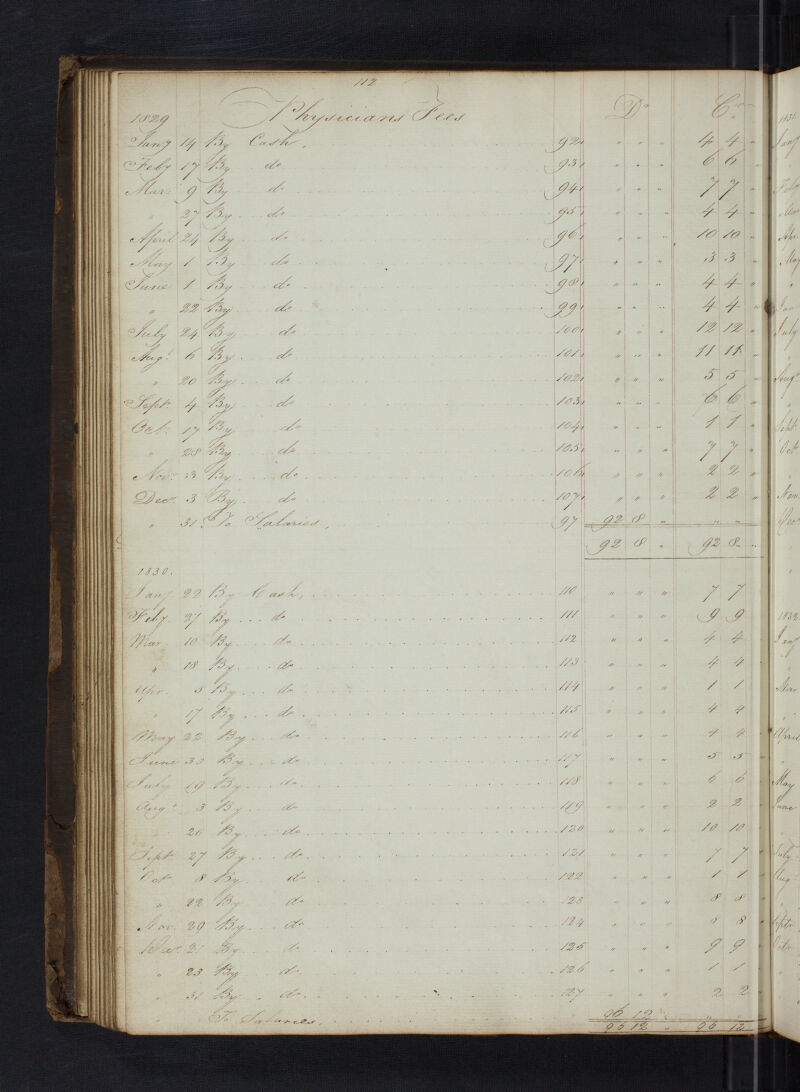 112
1829 Physicians Fees Dr Cr
Jany 14 By Cash. 92 " " " 4 4 "
Feby 17 By do 93 " " " 6 6 "
Mar. 9 By do 94 " " " 7 7 "
" 27 By do 95 " " " 4 4 "
April 24 By do 96 " " " 10 10 "
May 1 By do 97 " " " 3 3 "
June 1 By do 98 " " " 4 4 "
" 22 By do 99 " " " 4 4 "
July 24 By do 100 " " " 12 12 "
Augt 6 By do 101 " " " 11 11 "
" 20 By do 102 " " " 5 5 "
Sept. 4 By do 103 " " " 6 6 "
Oct. 17 By do 104 " " " 1 1 "
" 28 By do 105 " " " 7 7 "
Nov. 3 By do 106 " " " 2 2 "
Dec. 3 By do 107 " " " 2 2 "
" 31 To Salaries. 97 92 8 " " " "
92 8 " 92 8 "
1830.
Jany 22 By Cash, 110 " " " 7 7
Feby. 27 By do 111 " " " 9 9
Mar. 10 By do 112 " " " 4 4
" 18 By do 113 " " " 4 4
Apr. 5 By do 114 " " " 1 1
" 17 By do 115 " " " 4 4
May 22 By do 116 " " " 4 4
June 30 By do 117 " " " 5 5
July 19 By do 118 " " " 6 6
Augt 3 By do 119 " " " 2 2
" 20 By do 120 " " " 10 10
Sept. 27 By do 121 " " " 7 7
Oct 8 By do 122 " " " 1 1
" 22 By do 123 " " " 8 8
Nov. 29 By do 124 " " " 8 8
Dec. 21 By do 125 " " " 9 9
" 23 By do 126 " " " 1 1
" 31 By do 127 " " " 2 2
" " To Salaries. 96 12 " " "
96 12 " 96 12
1831
Jany
Feby
Mar
Apr.
May
"
Jun
July
"
Augt
"
Sept.
Oct
"
Nov
Dec
1832
Jany
"
Mar
"
April
"
May
June
"
July
Aug
"
Septr
Octr